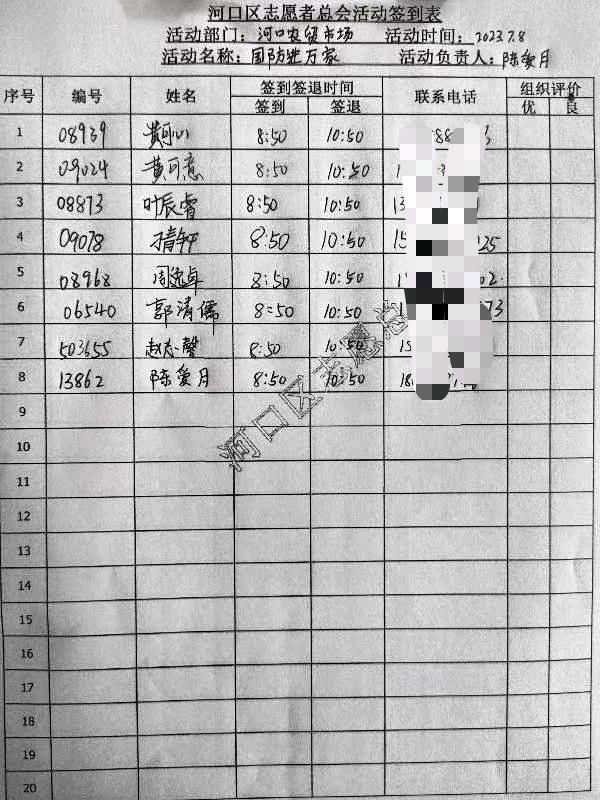 河口区志愿者总会活动签到表
活动部门：河口农贸市场 活动时间：2023.7.8
活动名称：国防进万家 活动负责人：陈爱月
序号 编号 姓名 签到签退时间 联系电话 组织评价
签到 签退 优 良
1 08939 黄可心 8:50 10:50
2 09024 黄可意 8:50 10:50
3 08873 叶辰睿 8:50 10:50
4 09078 8:50 10:50
5 08968 周逸卓 8:50 10:50
6 06540 郭清儒 8:50 10:50
7 503655 赵志馨 8:50 10:50
8 13862 陈爱月 8:50 10:50
9
10
11
12
13
14
15
16
17
18
19
20
河口区志愿者总